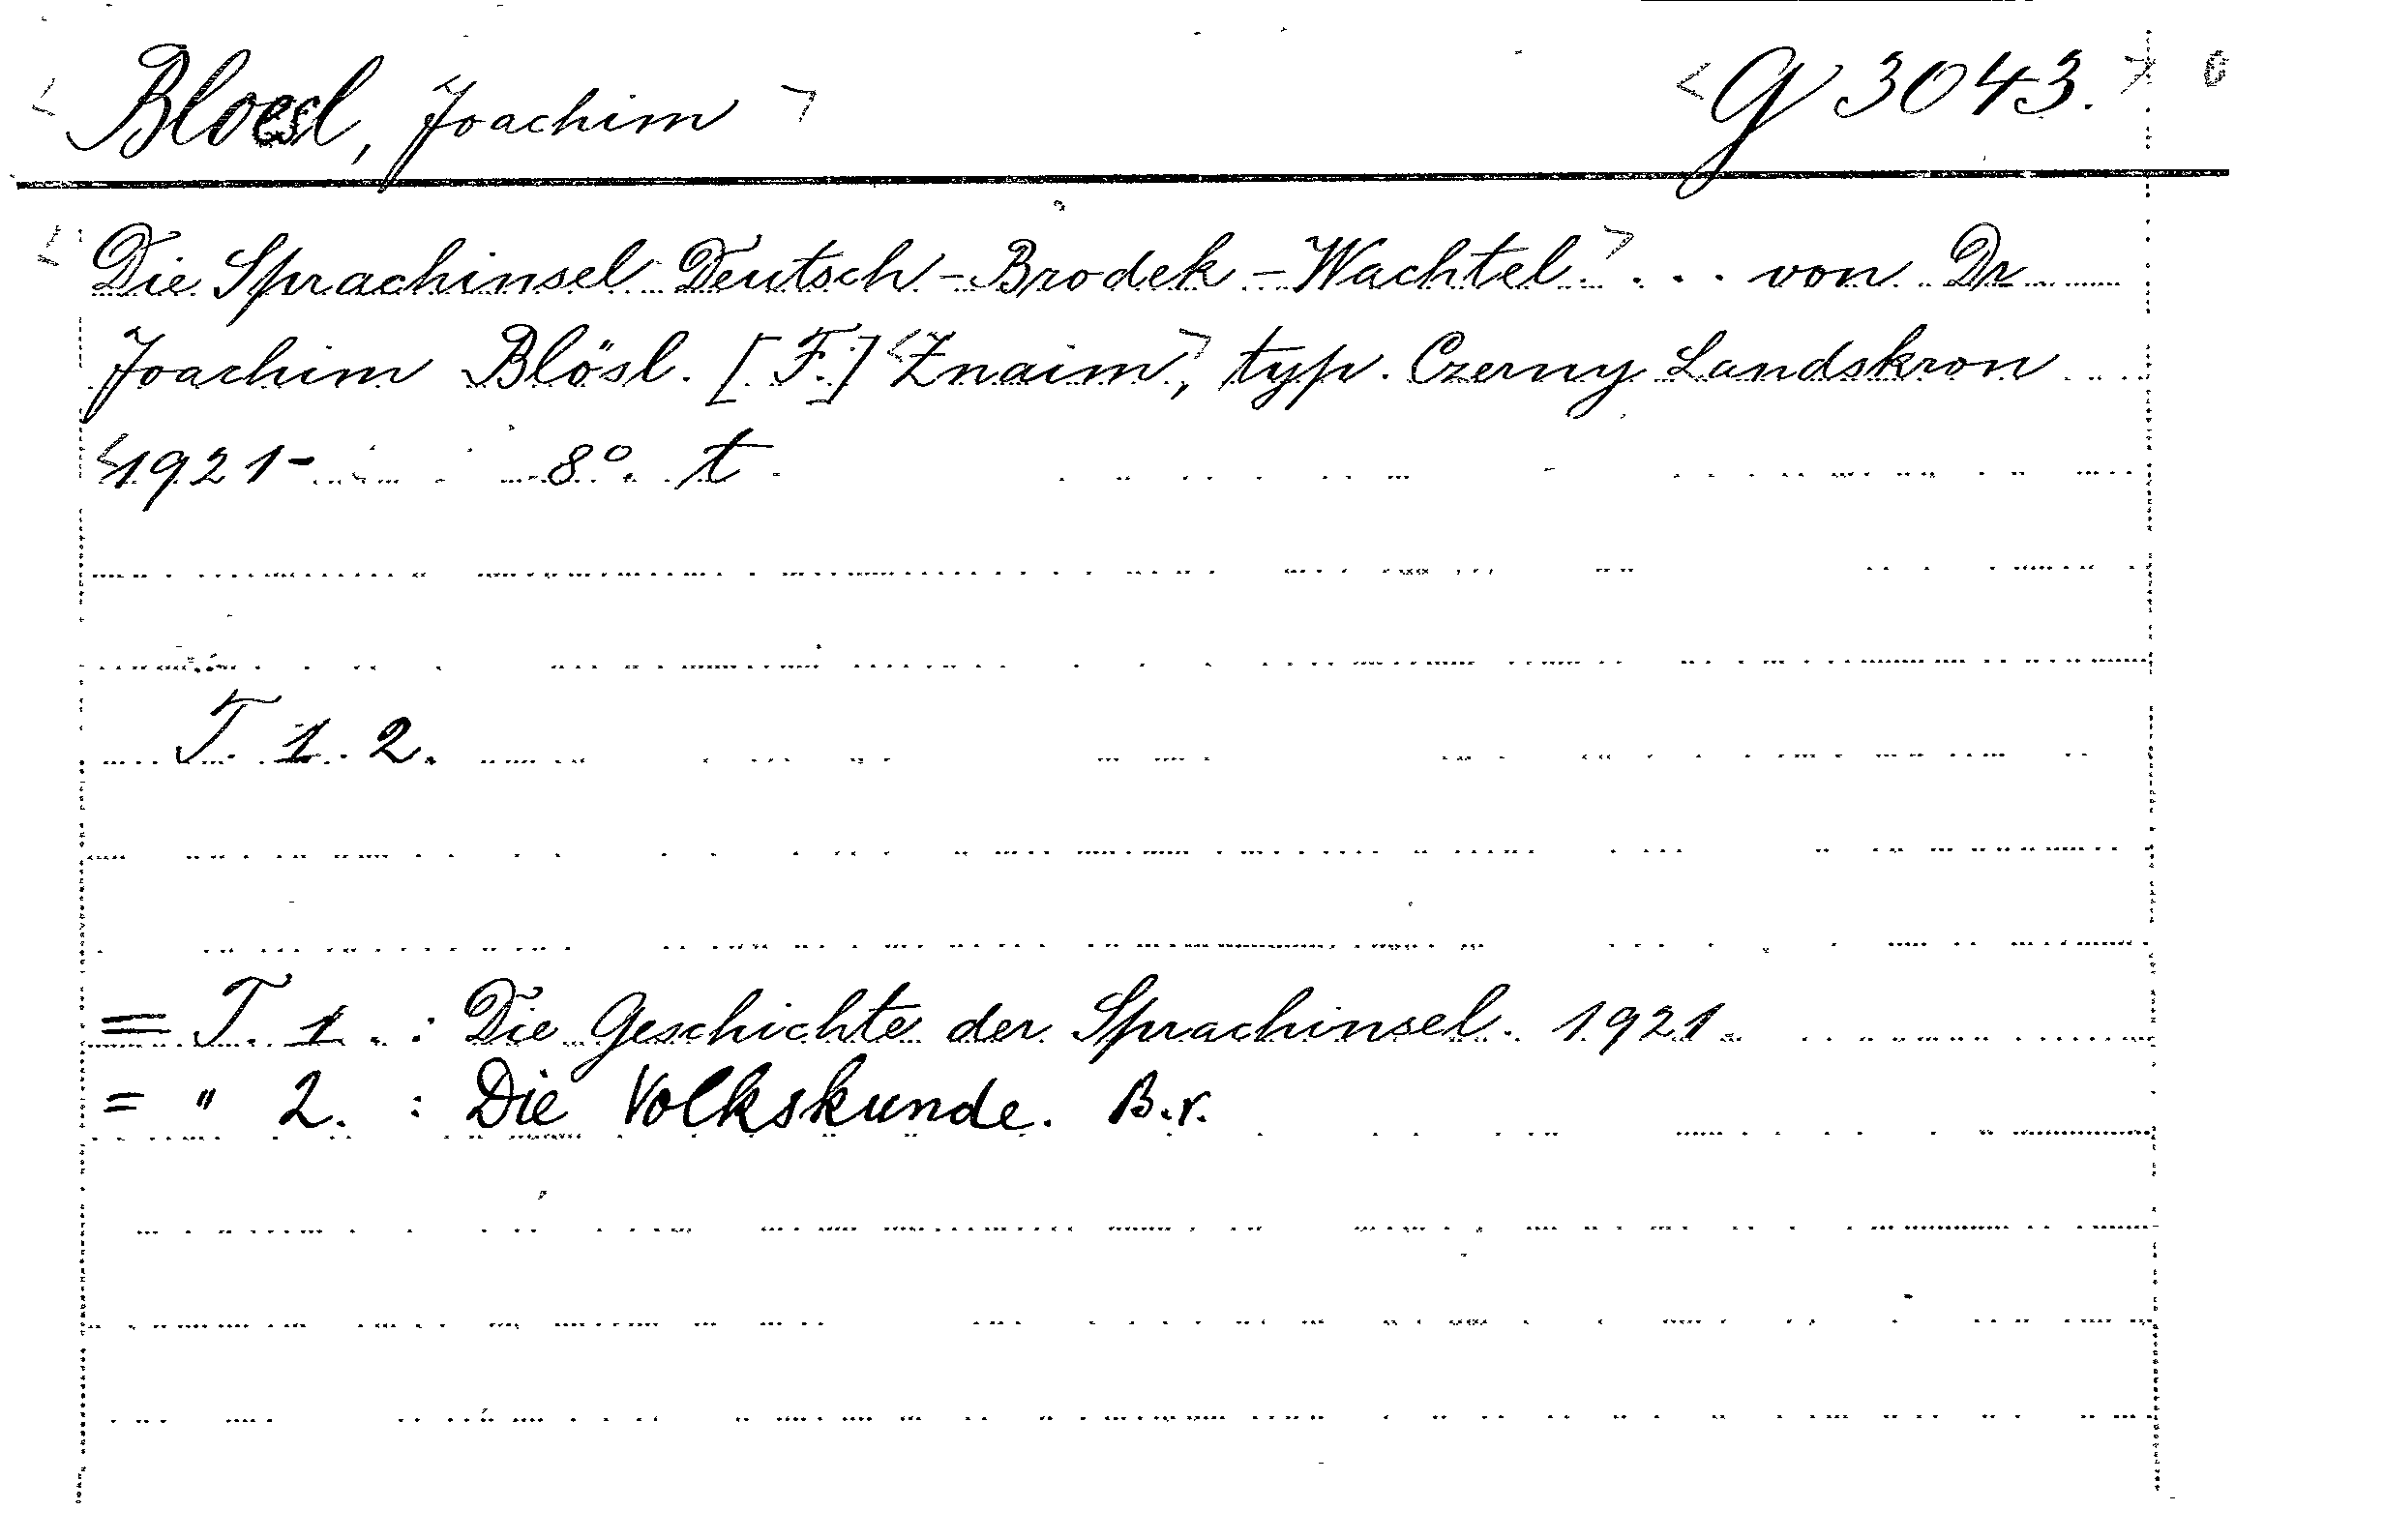 <Bloesl, Joachim> <G 3043.> 6
<Die Sprachinsel Deutsch-Brodek-Wachtel> . . . von Dr
Joachim Blösl. [F.] <Znaim>, typ. Czerny Landskron
<1921- 8°. t.
T. 1. 2.
= T. 1. : Die Geschichte der Sprachinsel. 1921.
= " 2. : Die Volkskunde. B.r.